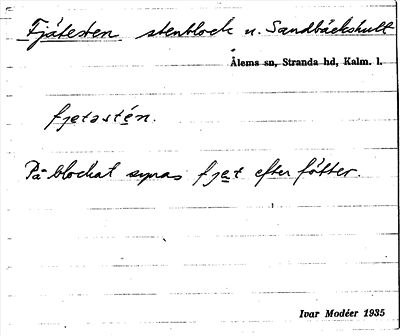 Fjätesten stenblock n. Sandbäckshult
Ålems sn, Stranda hd, Kalm. l.
fjetəstén.
På blockat synas fjet efter fötter.
Ivar Modéer 1935